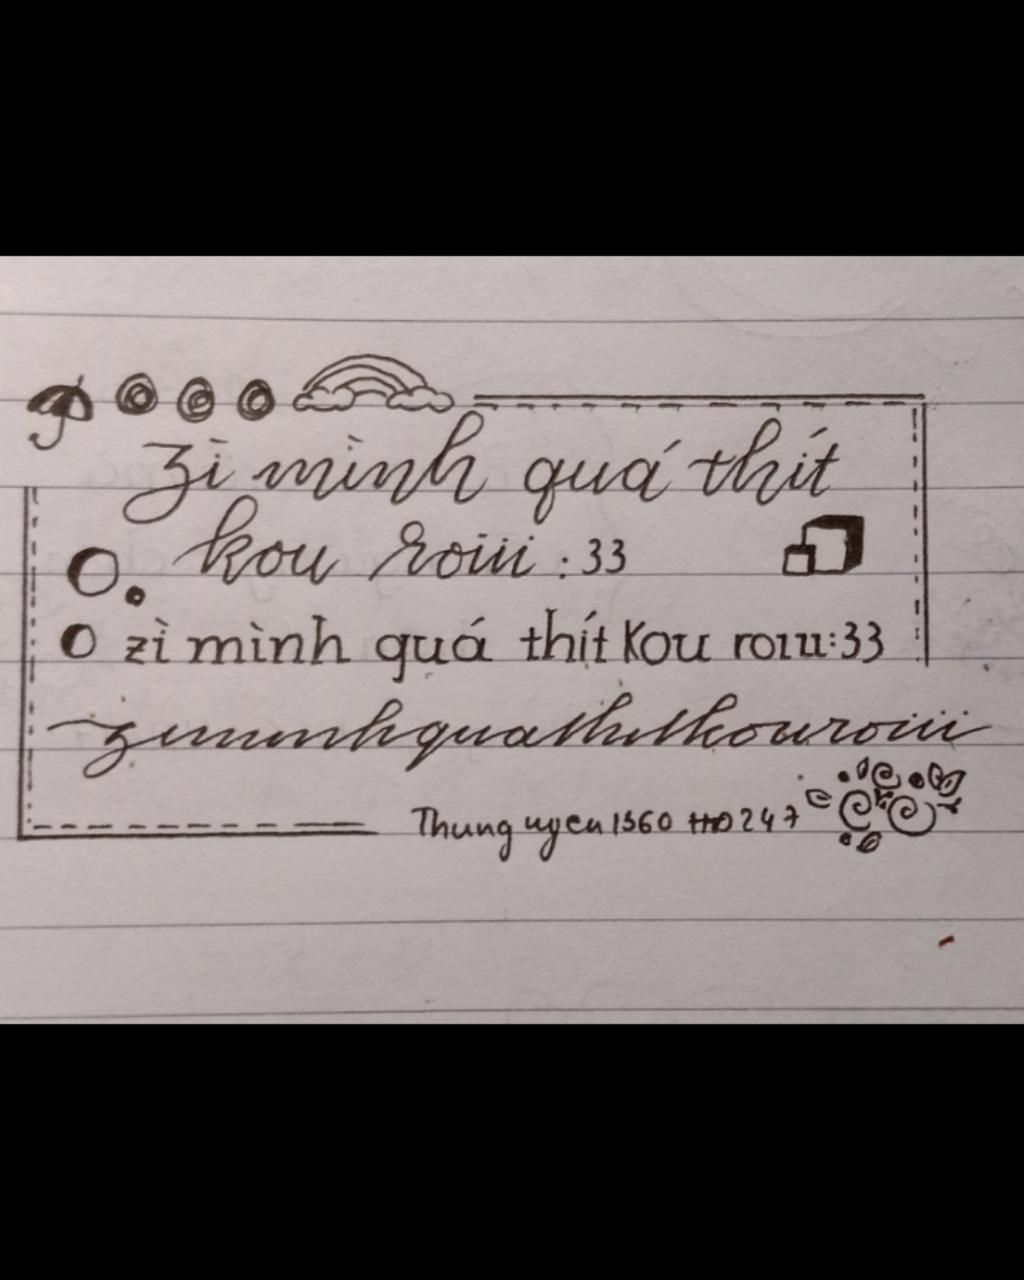 zì mình quá thít
kou roiii :33
zì mình quá thít kou roiii:33
ziminhquathitkouroiii
Thungnyen1360 HD247